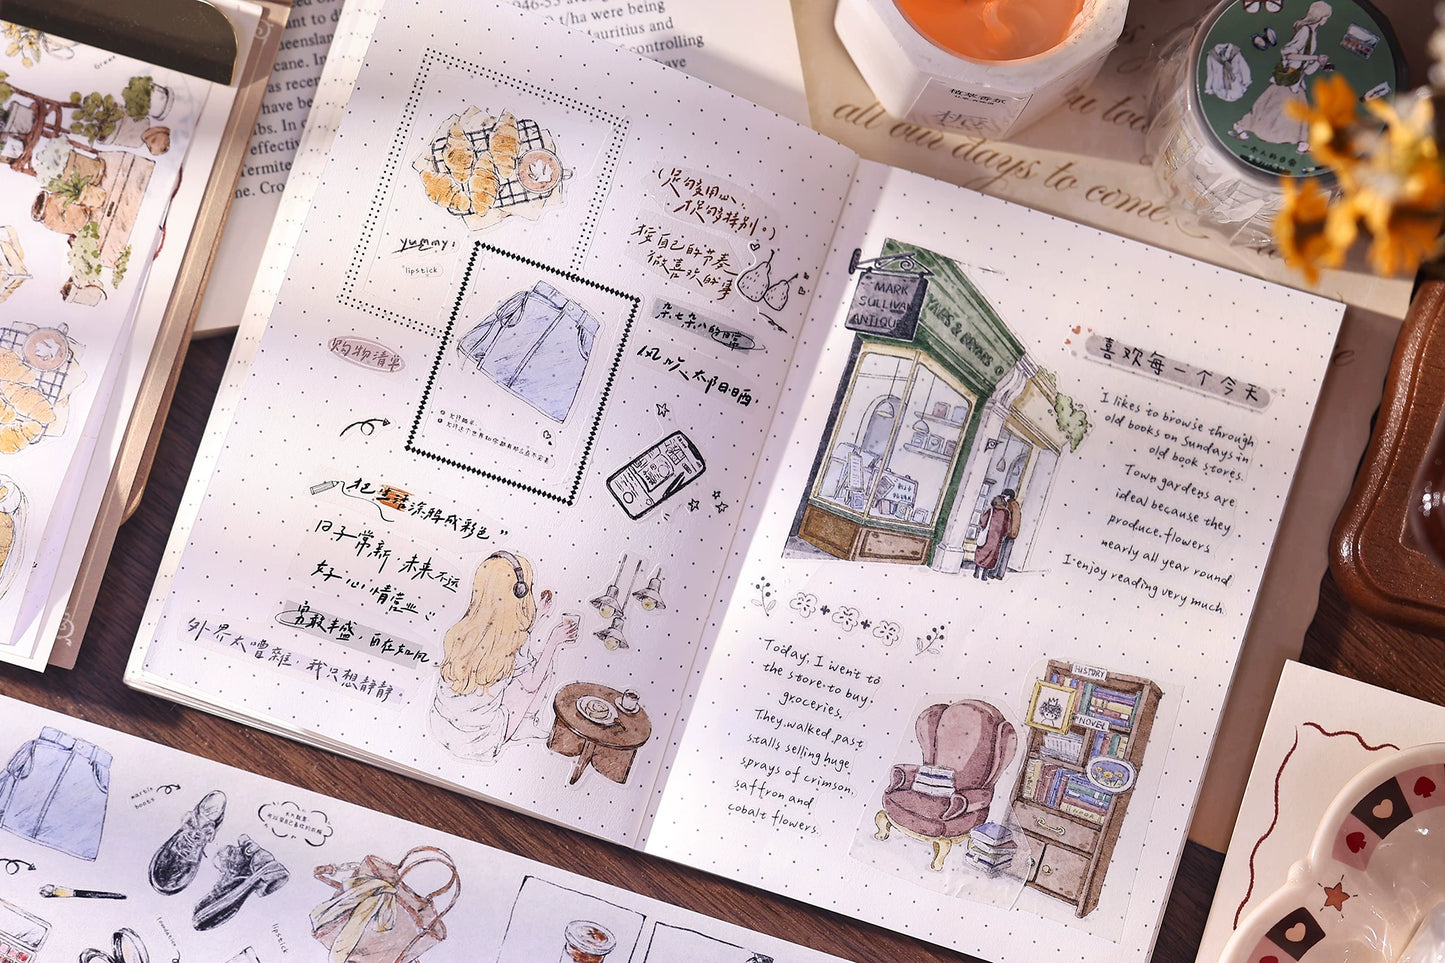 046-55 average
t/ha were being
Mauritius and
controlling
ave
ant to d
ueensland
cane. In
as recen
have be
bs. In
effectiv
Termite
ne. Cro
all our days to come.
yummy:
"lipstick
(足够用心,
才足够特别。)
按自己的节奏
做喜欢的事
杂七杂八的日常
风吹太阳晒.
购物清单
把生活涂牌成彩色"
日子常新,未来不远
好心情营业
勇敢丰盛,自在如风.
外界太嘈雜,我只想静静.
MARK
SULLIVAN
ANTIQUE
喜欢每一个今天
I likes to browse through
old books on Sundays in
old book stores.
Town gardens are
ideal because they
produce.flowers
nearly all year round
I·enjoy reading very much.
"Today, I went to
the store·to buy
groceries.
They.walked past
stalls selling huge
sprays of crimson.
saffron and
cobalt flowers.
HISTORY
NOVEL
martin
boots
lipstick